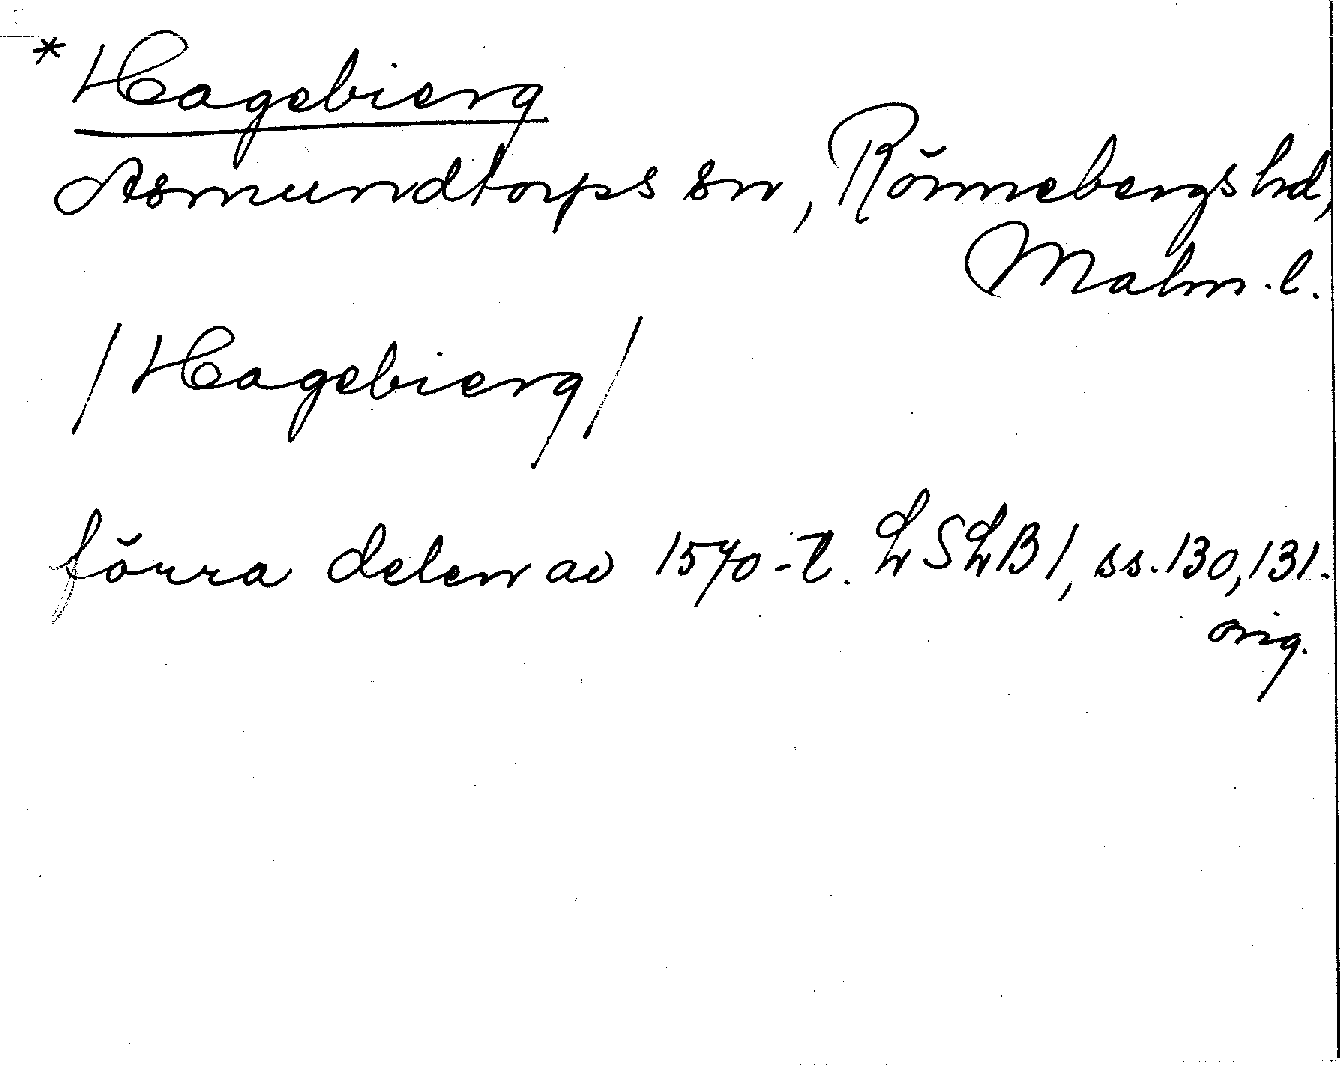 * Hagebierg
Asmundtorps sn, Rönnebergs hd,
Malm. l.
/Hagebierg/
förra delen av 1570-t. LSLB1, ss. 130, 131.
orig.